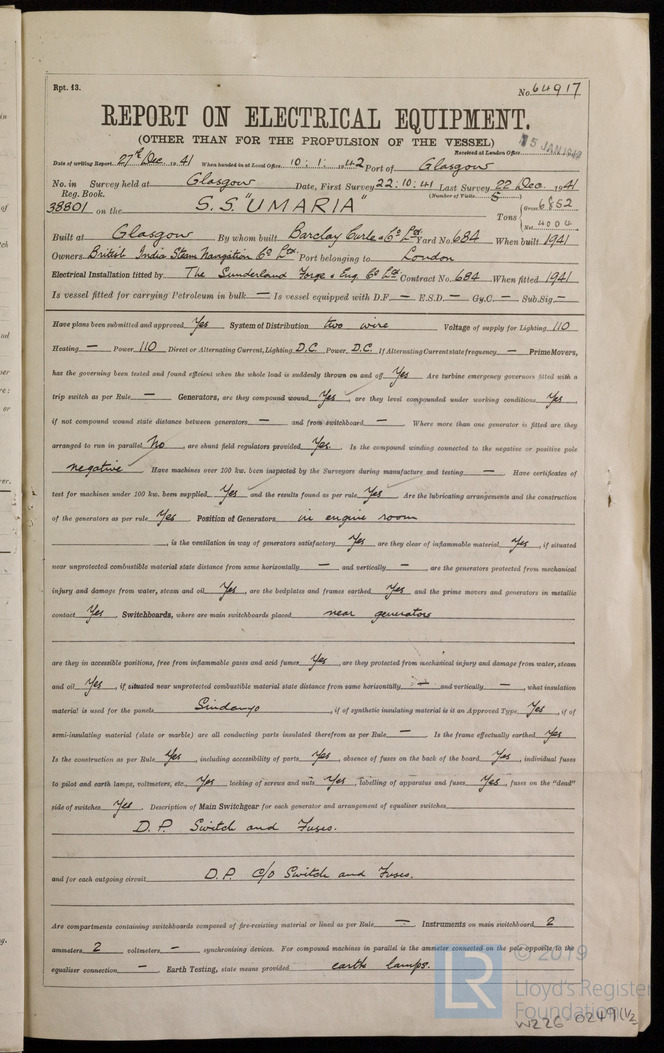 Rpt. 13.
No. 64917
REPORT ON ELECTRICAL EQUIPMENT.
(OTHER THAN FOR THE PROPULSION OF THE VESSEL)
Received at London Office 15 JAN 1942
Date of writing Report 27th Dec. 1941 When handed in at Local Office 10 : 1 : 1942 Port of Glasgow
No. in Survey held at Glasgow Date, First Survey 22 : 10 : 41 Last Survey 22 Dec. 1941
Reg. Book. (Number of Visits 5 )
38801 on the S.S. "UMARIA" Tons { Gross 6852
Net 4004
Built at Glasgow By whom built Barclay Curle & Co Ltd Yard No. 684 When built 1941
Owners British India Steam Navigation Co Ltd Port belonging to London
Electrical Installation fitted by The Sunderland Forge & Eng. Co Ltd Contract No. 684 When fitted 1941
Is vessel fitted for carrying Petroleum in bulk — Is vessel equipped with D.F. — E.S.D. — Gy.C. — Sub.Sig. —
Have plans been submitted and approved Yes System of Distribution two wire Voltage of supply for Lighting 110
Heating — Power 110 Direct or Alternating Current, Lighting D.C. Power D.C. If Alternating Current state frequency — Prime Movers,
has the governing been tested and found efficient when the whole load is suddenly thrown on and off Yes Are turbine emergency governors fitted with a
trip switch as per Rule — Generators, are they compound wound Yes , are they level compounded under working conditions Yes ,
if not compound wound state distance between generators — and from switchboard — Where more than one generator is fitted are they
arranged to run in parallel No , are shunt field regulators provided Yes. Is the compound winding connected to the negative or positive pole
negative Have machines over 100 kw. been inspected by the Surveyors during manufacture and testing — Have certificates of
test for machines under 100 kw. been supplied Yes and the results found as per rule Yes Are the lubricating arrangements and the construction
of the generators as per rule Yes Position of Generators in engine room
, is the ventilation in way of generators satisfactory Yes are they clear of inflammable material Yes , if situated
near unprotected combustible material state distance from same horizontally — and vertically — , are the generators protected from mechanical
injury and damage from water, steam and oil Yes , are the bedplates and frames earthed Yes and the prime movers and generators in metallic
contact Yes . Switchboards, where are main switchboards placed near generators
are they in accessible positions, free from inflammable gases and acid fumes Yes , are they protected from mechanical injury and damage from water, steam
and oil Yes , if situated near unprotected combustible material state distance from same horizontally — and vertically — , what insulation
material is used for the panels Sindanyo , if of synthetic insulating material is it an Approved Type Yes , if of
semi-insulating material (slate or marble) are all conducting parts insulated therefrom as per Rule — Is the frame effectually earthed Yes
Is the construction as per Rule Yes , including accessibility of parts Yes , absence of fuses on the back of the board Yes , individual fuses
to pilot and earth lamps, voltmeters, etc. Yes locking of screws and nuts Yes , labelling of apparatus and fuses Yes , fuses on the "dead"
side of switches Yes . Description of Main Switchgear for each generator and arrangement of equaliser switches
D.P. Switch and Fuses.
and for each outgoing circuit D.P. C/O Switch and Fuses.
Are compartments containing switchboards composed of fire-resisting material or lined as per Rule — Instruments on main switchboard 2
ammeters 2 voltmeters — synchronising devices. For compound machines in parallel is the ammeter connected on the pole opposite to the
equaliser connection — Earth Testing, state means provided earth lamps.
© 2019
LR
Lloyd's Register
Foundation
W226-0249 (1/2